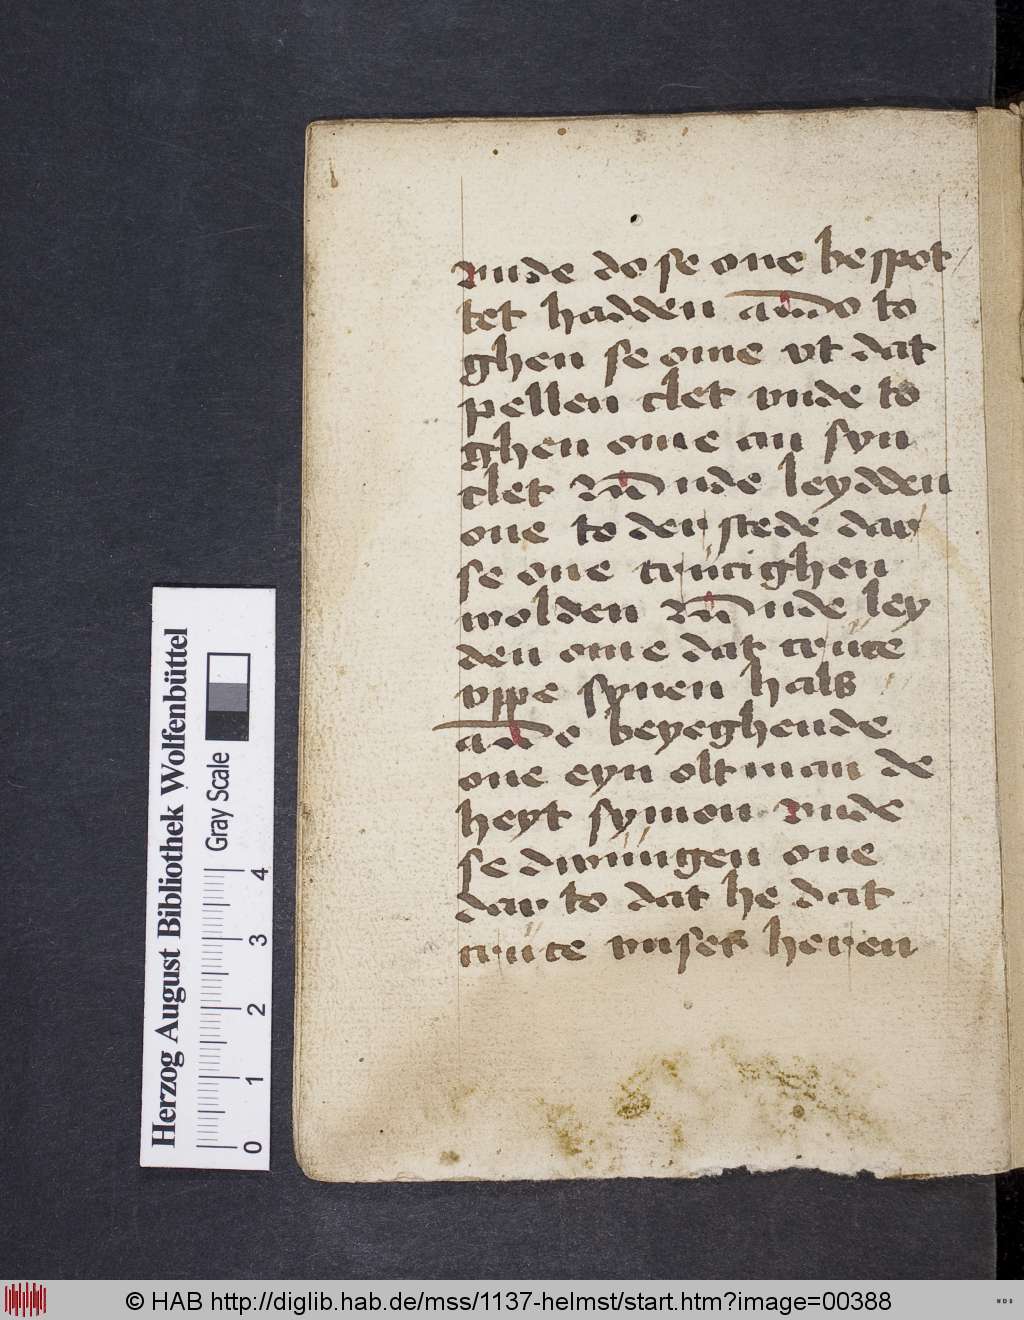 vnde do se one bespot
tet hadden to
ghen se ome vt dat
pellen clet vnde to
ghen ome an syn
clet leydden
one to der stede dar
se one crucighen
wolden ley
den ome dat cruce
vppe synen hals
beyeghende
one eyn olt man de
heyt symon vnde
se dwungen one
dar to dat he dat
cruce vnses heren
Herzog August Bibliothek Wolfenbüttel
Gray Scale
0 1 2 3 4
© HAB http://diglib.hab.de/mss/1137-helmst/start.htm?image=00388